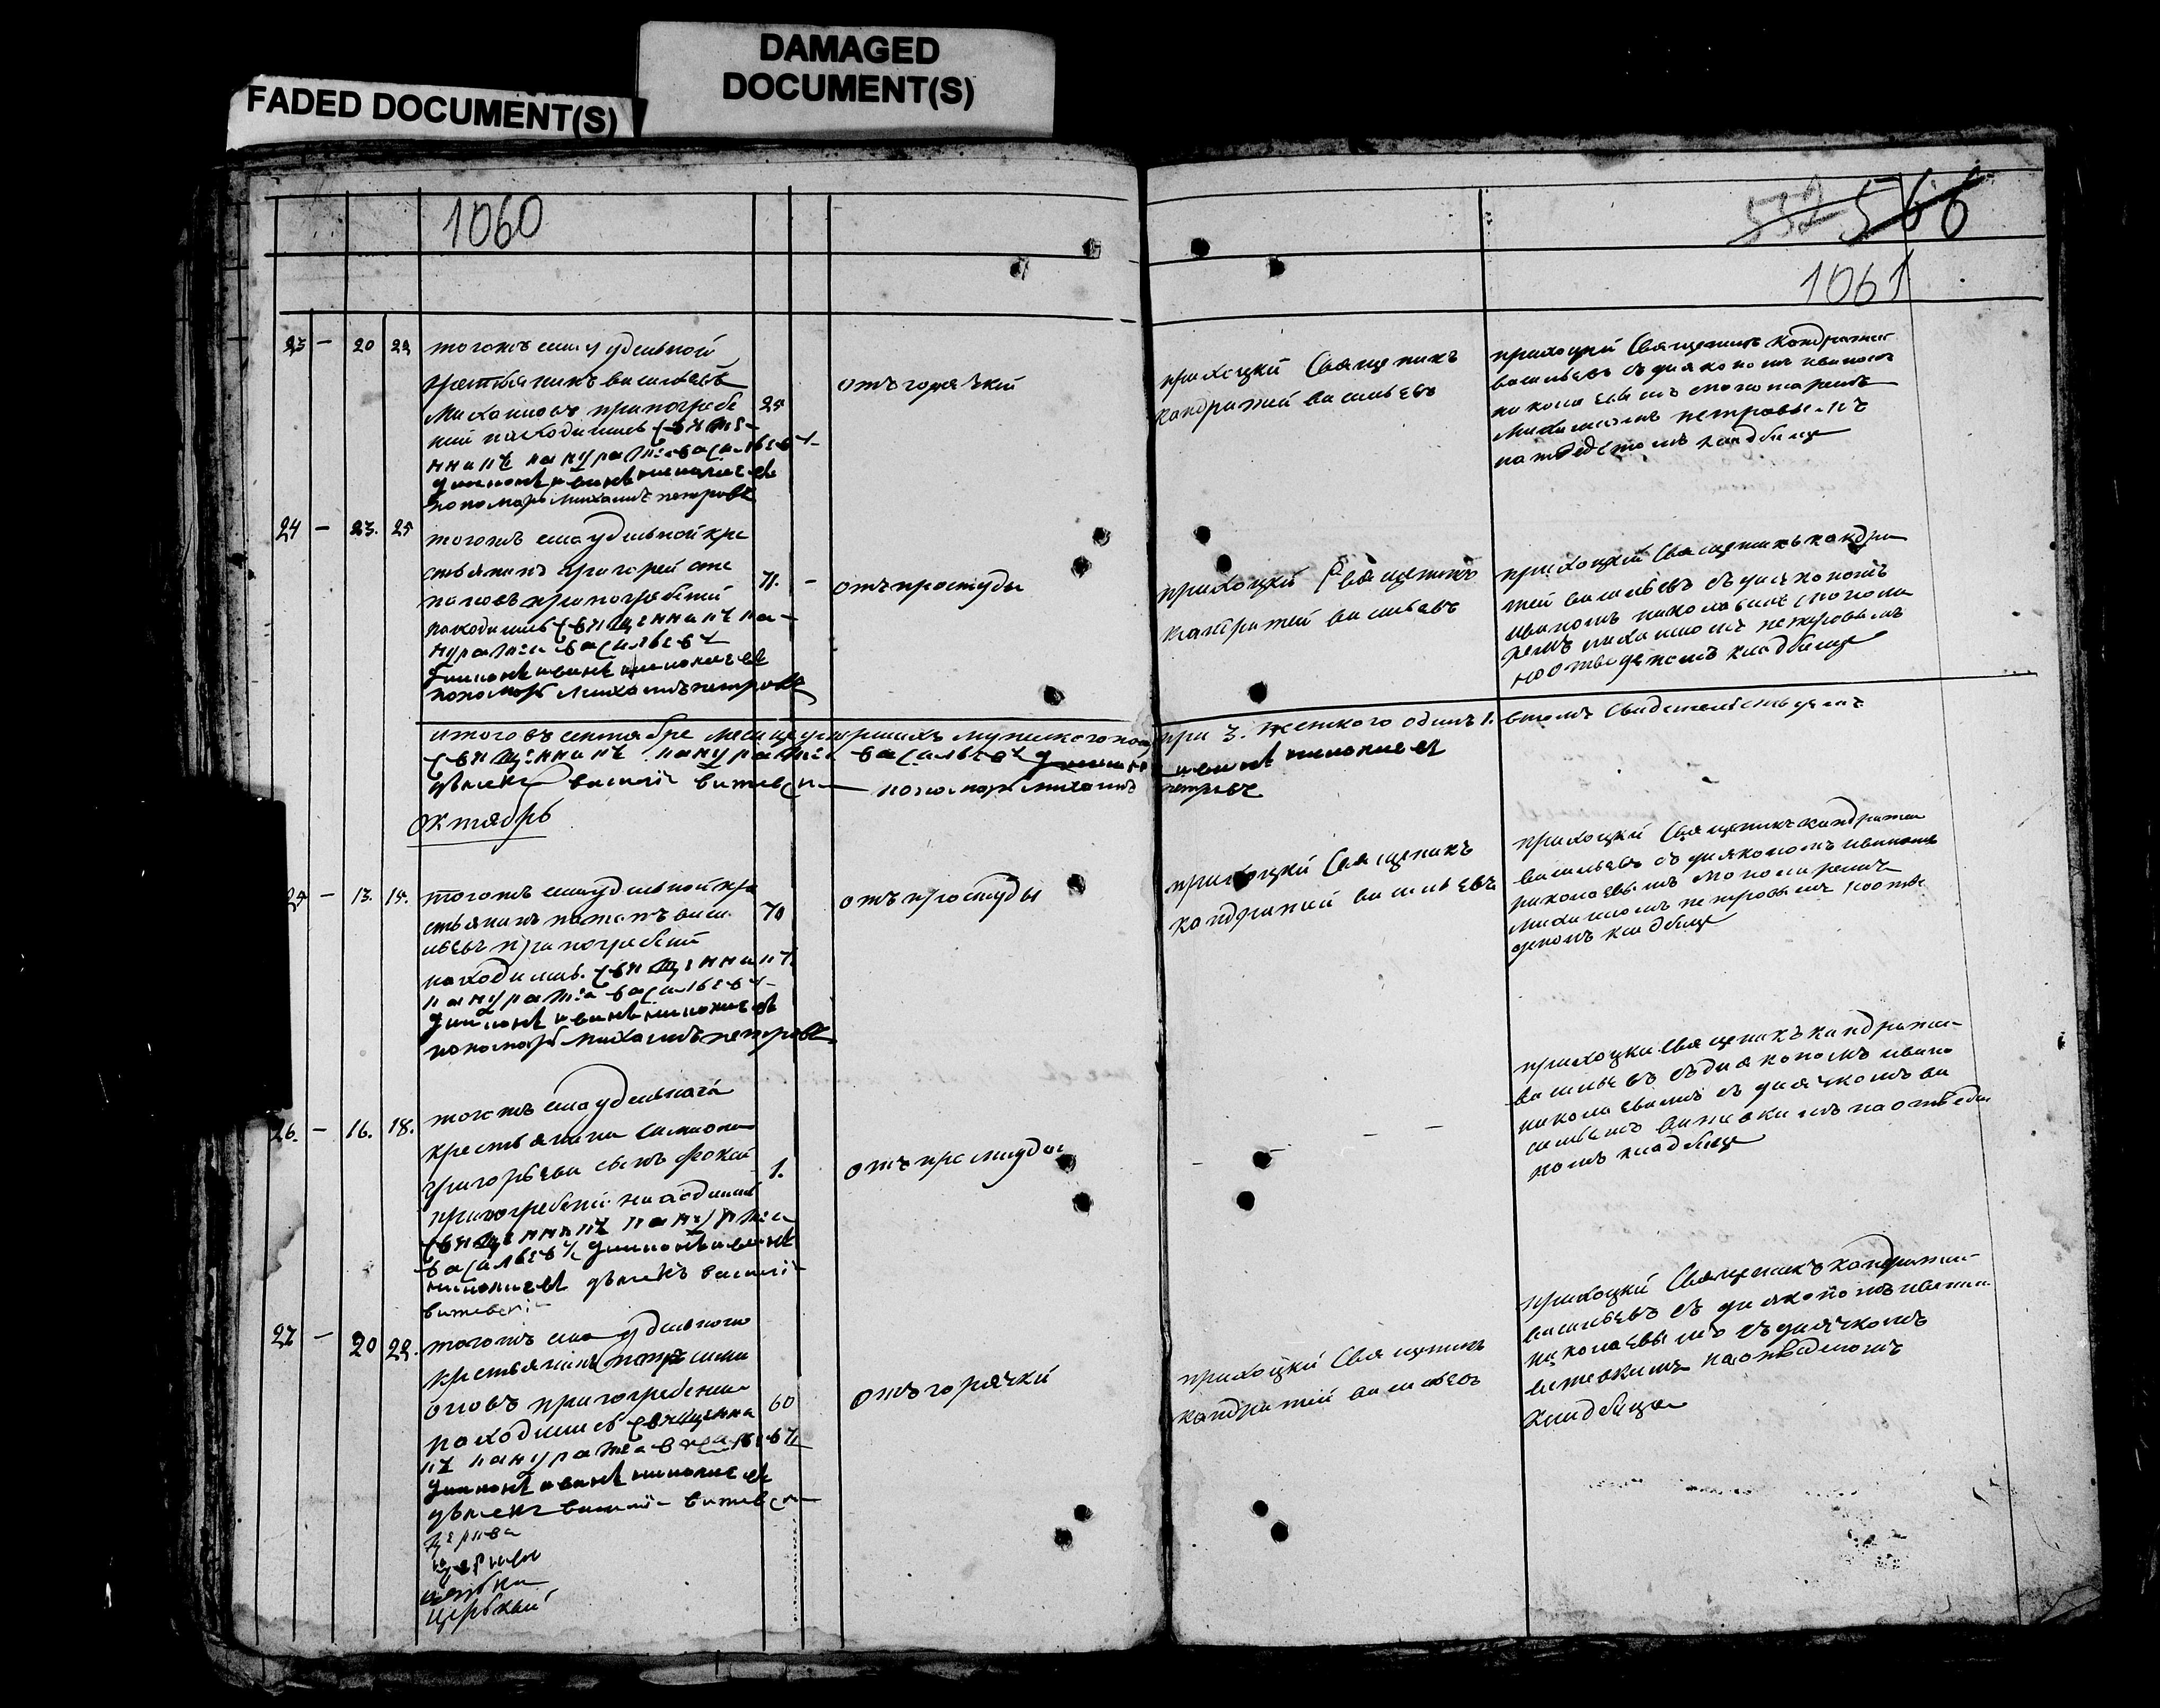 FADED DOCUMENT(S)
DAMAGED
DOCUMENT(S)
1060
532 566
1061
23 - 20 22 тогожъ села удельной
крестьянинъ василей
Михаиловъ при погребе
25
нии находились священ
никъ кандратiй васильевъ
диаконъ иванъ николаевъ
пономарь михаилъ петровъ
отъ горячки
приходцкй Священикъ
кондратей васильевъ
приходцкй Священикъ кондратей
васильевъ съ диакономъ иваномъ
николаевымъ с пономаремъ
михаиломъ петровымъ
на отведеномъ кладбище
24 - 23. 25 тогожъ села удельной кре
стьянинъ григорей сте
пановъ при погребении
71. -
находились священникъ кан
дратiй васильевъ
диаконъ иванъ николаевъ
пономарь михаилъ петровъ
отъ простуды
приходцкй Священикъ
кандратей васильевъ
приходцкй Священикъ кандра
тей васильевъ съ диакономъ
иваномъ николаевымъ с понома
ремъ михаиломъ петровымъ
на отведеномъ кладбище
итого въ сентябре месяце умершихъ мужескаго пола три 3. женского одинъ 1. в томъ свидетельствуемъ
священникъ кандратiй васильевъ диаконъ иванъ николаевъ
дьячекъ василiй витевск пономарь михаилъ петровъ
октябрь
25 - 13. 15. тогожъ села удельной кре
стьянинъ потапъ васи
70
льевъ при погребении
находились священникъ
кандратiй васильевъ
диаконъ иванъ николаевъ
пономарь михаилъ петровъ
отъ простуды
приходцкй Священикъ
кандратей васильевъ
приходцкй Священикъ кандратей
васильевъ съ диакономъ иваномъ
николаевымъ с пономаремъ
михаиломъ петровымъ на отве
деномъ кладбище
26. - 16. 18. тогожъ села удельнаго
крестьянина симиона
григорьева сынъ фокой
1.
при погребении находились
священникъ кандратiй
васильевъ диаконъ иванъ
николаевъ дьячекъ василiй
витевск
отъ простуды
- - -
приходцки Священикъ кандратей
васильевъ съ диакономъ ивано
николаевымъ съ дьячкомъ ва
сильемъ витевскимъ на отведе
номъ кладбище
27 - 20 22. тогожъ села удельного
крестьянинъ петръ сими
оновъ при погребении
60
находились священни
къ кандратiй васильевъ
диаконъ иванъ николаевъ
дьячекъ василiй витевск
отъ горячки
приходцкй Священикъ
кандратей васильевъ
приходцкй Священикъ кандратей
васильевъ съ диакономъ иваномъ
николаевымъ съ дьячкомъ
витевскимъ на отведеномъ
кладбище